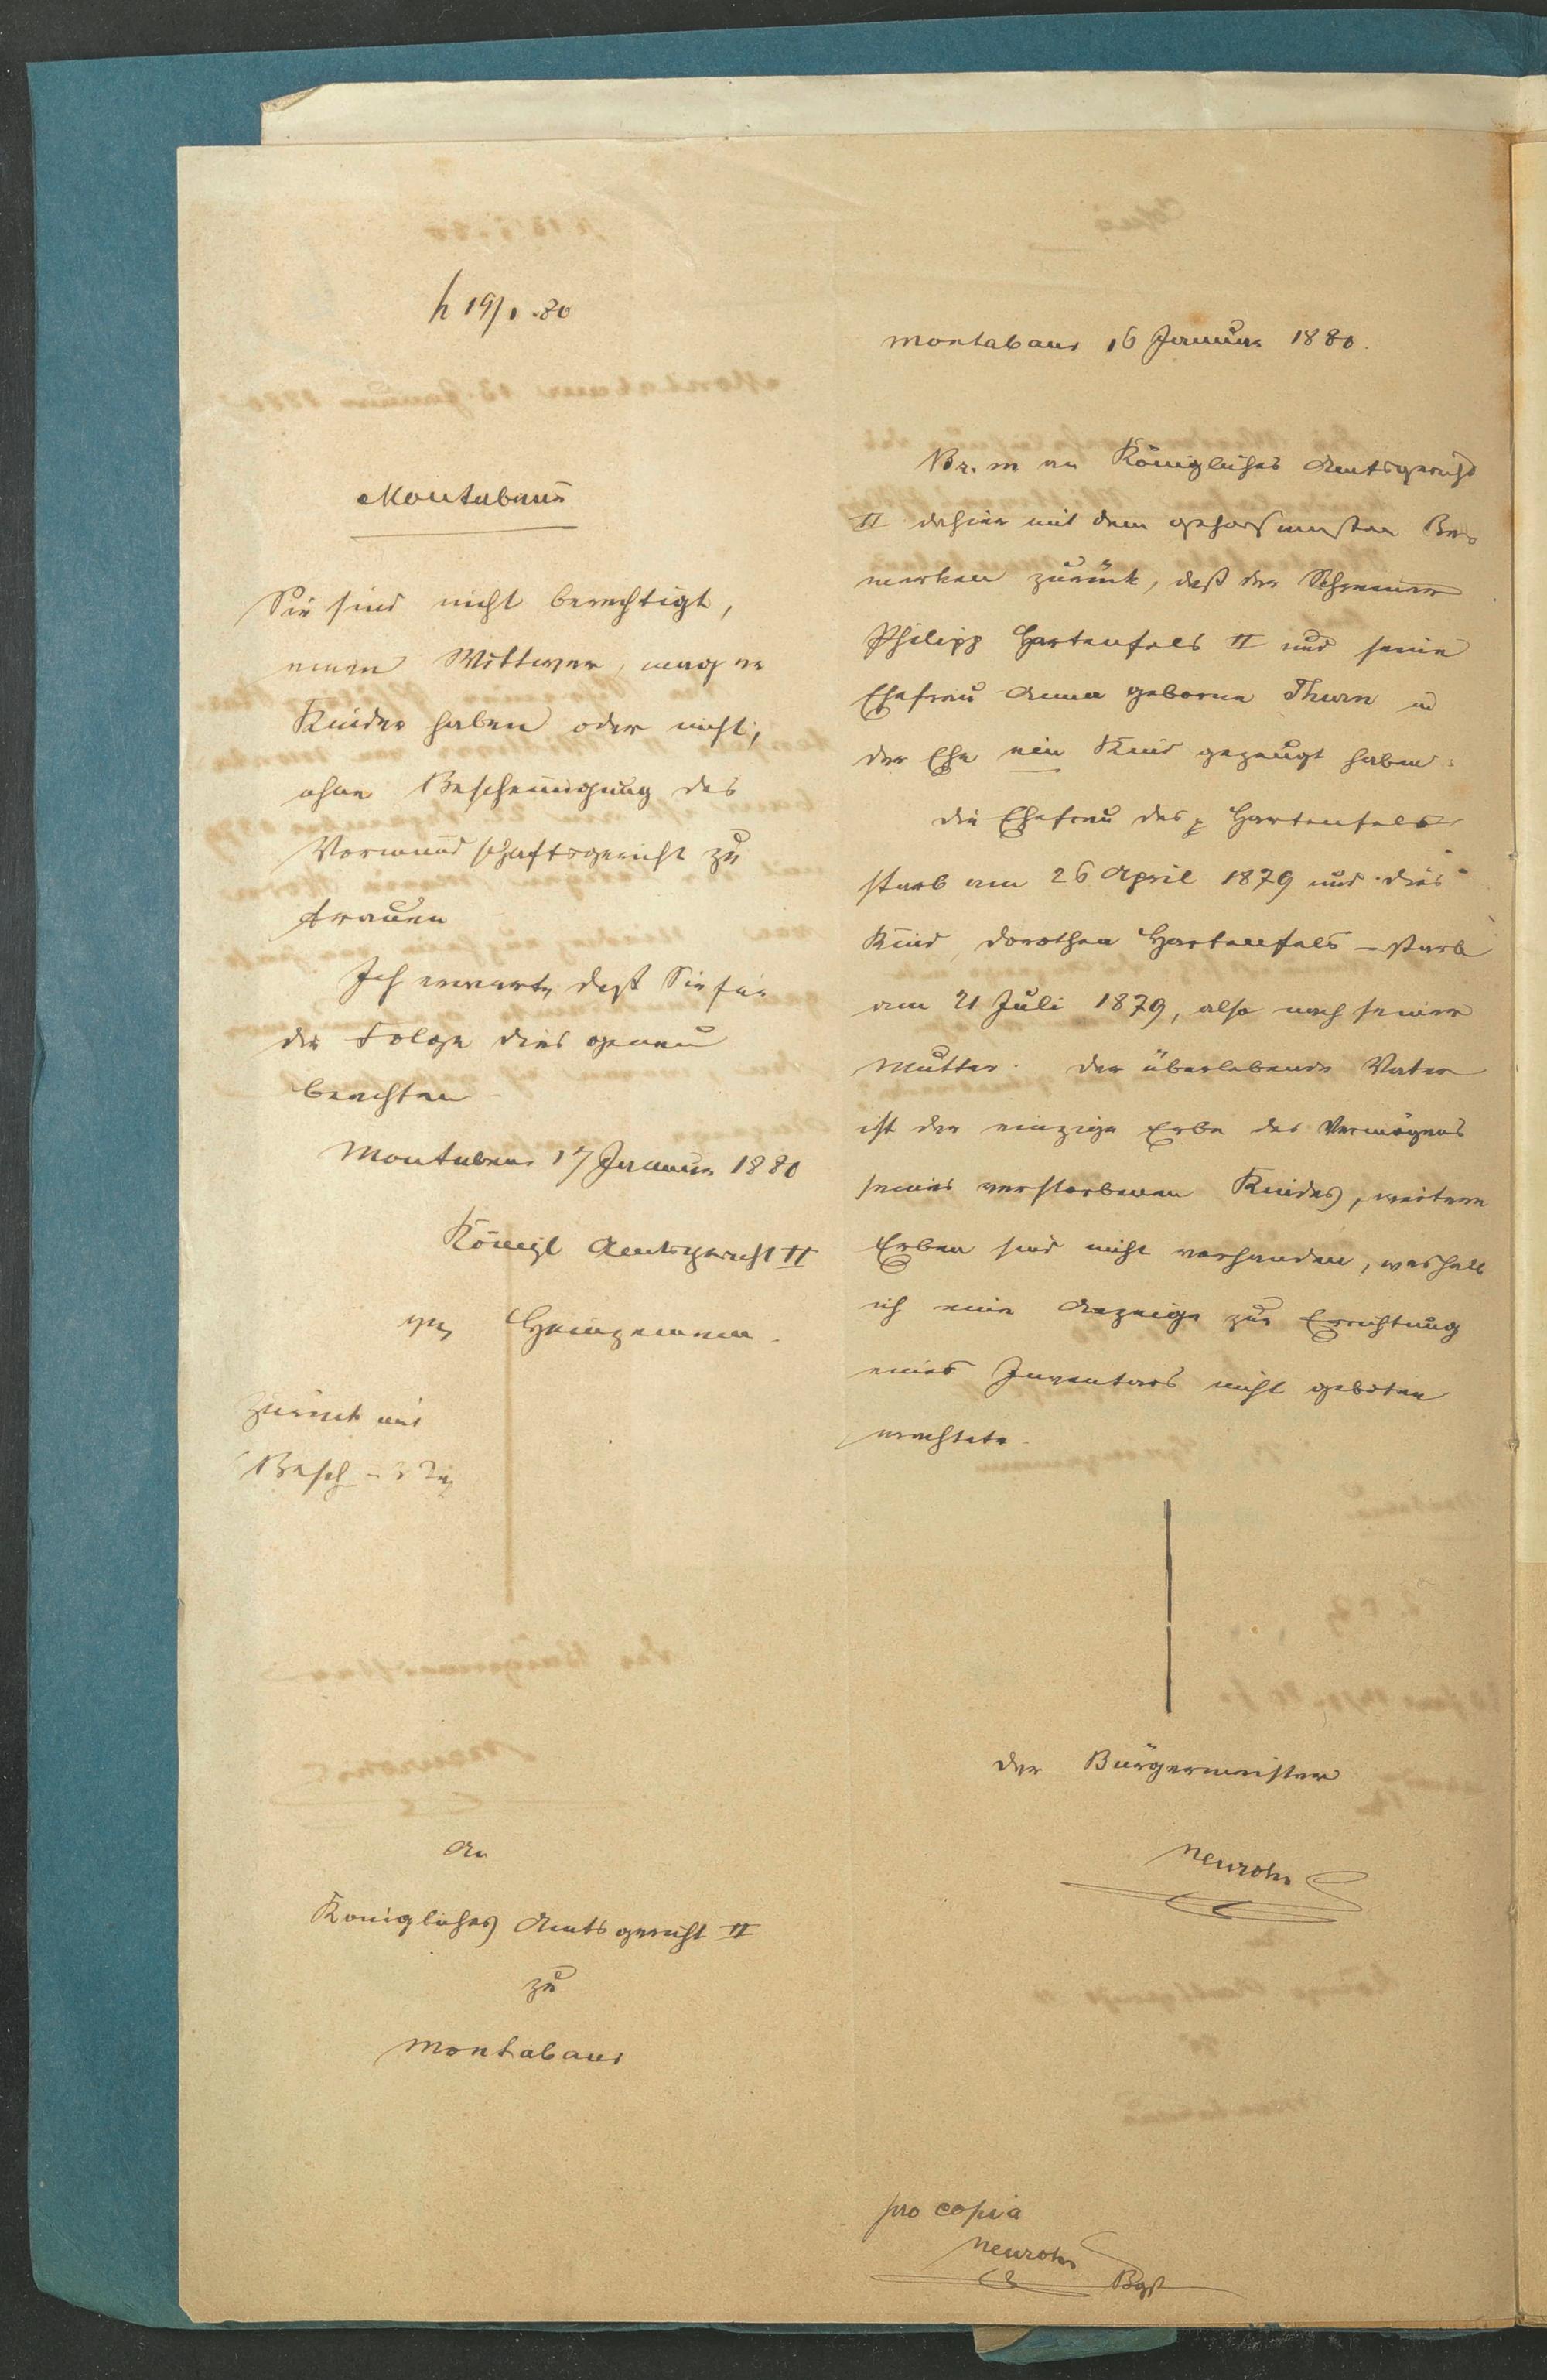 h 19/1.80
Montabaur
Sie sind nicht berechtigt,
einen Wittwer, mag er
Kinder haben oder nicht,
ohne Bescheinigung des
Vormundschaftsgericht zu
trauen
Ich erwarte, daß Sie für
die Folge dies genau
beachten
Montabaur 17 Januar 1880
Königl Amtsgericht II
gez Heinzemann.
Zurück mit
Besch
An
Königliches Amtsgericht II
zu
Montabaur
Montabaur 16 Januar 1880.
Br. m an Königliches Amtsgericht
II dahier mit dem gehorsamsten Be=
merken zurück, daß der Schreiner
Philipp Hartenfels II und seine
Ehefrau Anna geborne Thurn in
der Ehe ein Kind gezeugt haben.
die Ehefrau des p Hartenfels
starb am 26 April 1879 und dies
Kind, Dorothea Hartenfels – starb
am 21 Juli 1879, also nach seiner
Mutter. Der überlebende Vater
ist der einzige Erbe des Vermögens
seines verstorbenen Kindes, weitere
Erben sind nicht vorhanden, weshalb
ich eine Anzeige zur Errichtung
eines Inventars nicht geboten
erachtete.
der Bürgermeister
Neuroth
pro copia
Neuroth
Bgst